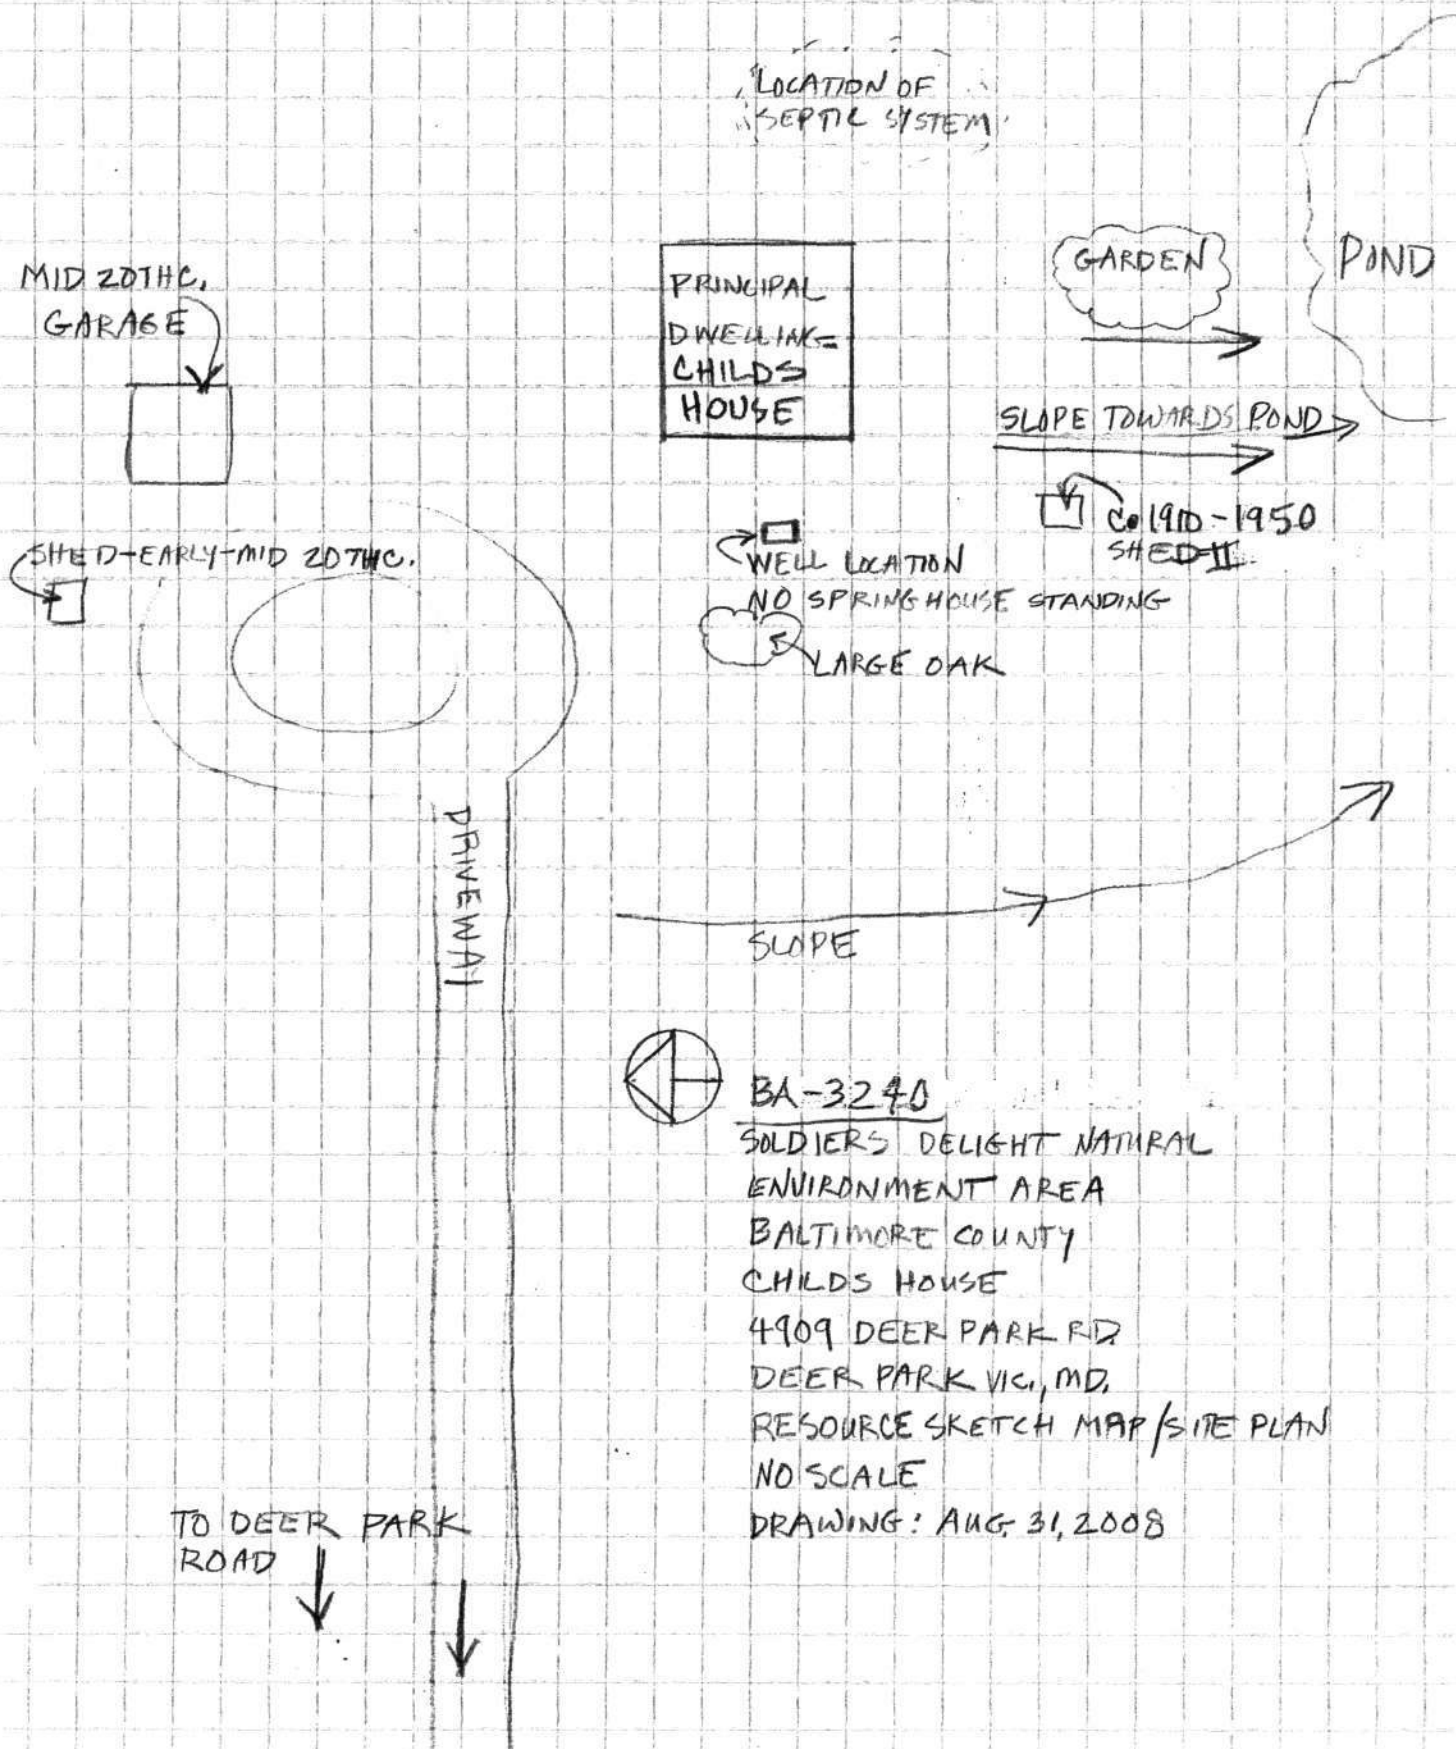 LOCATION OF
SEPTIC SYSTEM
MID 20THC.
GARAGE
PRINCIPAL
DWELLING-
CHILDS
HOUSE
GARDEN
POND
SLOPE TOWARDS POND
C. 1910-1950
SHED-II
SHED-EARLY-MID 20THC.
WELL LOCATION
NO SPRINGHOUSE STANDING
LARGE OAK
DRIVEWAY
SLOPE
BA-3240
SOLDIERS DELIGHT NATURAL
ENVIRONMENT AREA
BALTIMORE COUNTY
CHILDS HOUSE
4909 DEER PARK RD.
DEER PARK VIC., MD.
RESOURCE SKETCH MAP/SITE PLAN
NO SCALE
DRAWING: AUG. 31, 2008
TO DEER PARK
ROAD